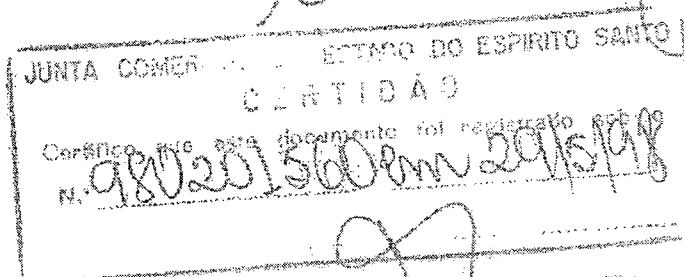 JUNTA COMER ESTADO DO ESPIRITO SANTO
CERTIDÃO
Certifico, que este documento foi registrado sob o
N.º 980201560 em 29/5/98